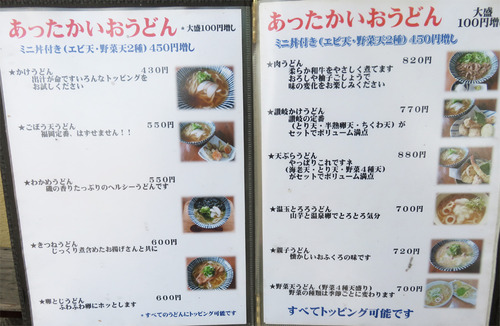 あったかいおうどん ・大盛100円増し
ミニ丼付き(エビ天・野菜天2種)450円増し
★かけうどん 430円
出汁が命ですいろんなトッピングを
お試しください
★ごぼう天うどん 550円
福岡定番、はずせません!!
★わかめうどん 550円
磯の香りたっぷりのヘルシーうどんです
★きつねうどん 600円
じっくり煮含めたお揚げさんと共に
★卵とじうどん 600円
ふわふわ卵にホッとします
・すべてのうどんにトッピング可能です
あったかいおうどん 大盛
100円増し
ミニ丼付き(エビ天・野菜天2種)450円増し
★肉うどん 820円
柔らか和牛をやさしく煮てます
おろしや柚子ごしょうで
味の変化をお楽しみください
★讃岐かけうどん 770円
讃岐の定番
(とり天・半熟卵天・ちくわ天)が
セットでボリューム満点
★天ぷらうどん 880円
やっぱりこれですネ
(海老天・とり天・野菜4種天)
がセットでボリューム満点
★温玉とろろうどん 700円
山芋と温泉卵でとろとろ気分
★親子うどん 720円
懐かしいおふくろの味です
★野菜天うどん(野菜4種天盛り) 700円
野菜の種類は季節ごとに変わります
すべてトッピング可能です